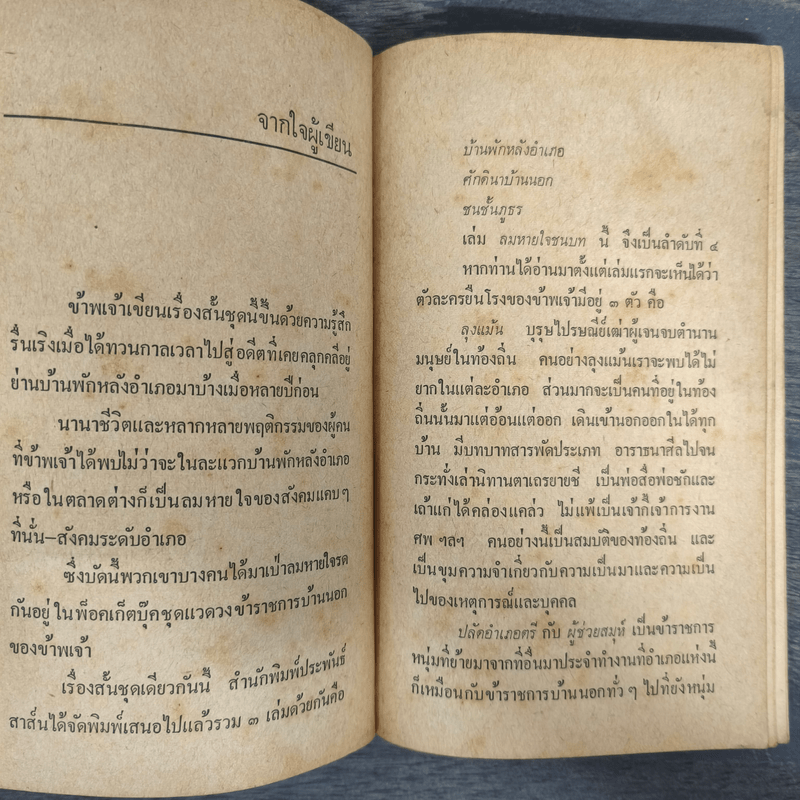 จากใจผู้เขียน
ข้าพเจ้าเขียนเรื่องสั้นชุดนี้ขึ้นด้วยความรู้สึก
รื่นเริงเมื่อได้ทวนกาลเวลาไปสู่อดีตที่เคยคลุกคลีอยู่
ย่านบ้านพักหลังอำเภอมาบ้างเมื่อหลายปีก่อน
นานาชีวิตและหลากหลายพฤติกรรมของผู้คน
ที่ข้าพเจ้าได้พบไม่ว่าจะในละแวกบ้านพักหลังอำเภอ
หรือในตลาดต่างก็เป็นลมหายใจของสังคมแคบๆ
ที่นั่น–สังคมระดับอำเภอ
ซึ่งบัดนี้พวกเขาบางคนได้มาเป่าลมหายใจรด
กันอยู่ในพ็อคเก็ตบุ๊คชุดแวดวงข้าราชการบ้านนอก
ของข้าพเจ้า
เรื่องสั้นชุดเดียวกันนี้ สำนักพิมพ์ประพันธ์
สาส์นได้จัดพิมพ์เสนอไปแล้วรวม ๓ เล่มด้วยกันคือ
บ้านพักหลังอำเภอ
ศักดินาบ้านนอก
ชนชั้นภูธร
เล่ม ลมหายใจชนบท นี้ จึงเป็นลำดับที่ ๔
หากท่านได้อ่านมาตั้งแต่เล่มแรกจะเห็นได้ว่า
ตัวละครยืนโรงของข้าพเจ้ามีอยู่ ๓ ตัว คือ
ลุงแม้น บุรุษไปรษณีย์เฒ่าผู้เจนจบตำนาน
มนุษย์ในท้องถิ่น คนอย่างลุงแม้นเราจะพบได้ไม่
ยากในแต่ละอำเภอ ส่วนมากจะเป็นคนที่อยู่ในท้อง
ถิ่นนั้นมาแต่อ้อนแต่ออก เดินเข้านอกออกในได้ทุก
บ้าน มีบทบาทสารพัดประเภท อาราธนาศีลไปจน
กระทั่งเล่านิทานตาเถรยายชี เป็นพ่อสื่อพ่อชักและ
เถ้าแก่ได้คล่องแคล่ว ไม่แพ้เป็นเจ้ากี้เจ้าการงาน
ศพ ฯลฯ คนอย่างนี้เป็นสมบัติของท้องถิ่น และ
เป็นขุมความจำเกี่ยวกับความเป็นมาและความเป็น
ไปของเหตุการณ์และบุคคล
ปลัดอำเภอตรี กับ ผู้ช่วยสมุห์ เป็นข้าราชการ
หนุ่มที่ย้ายมาจากที่อื่นมาประจำทำงานที่อำเภอแห่งนี้
ก็เหมือนกับข้าราชการบ้านนอกทั่ว ๆ ไปที่ยังหนุ่ม